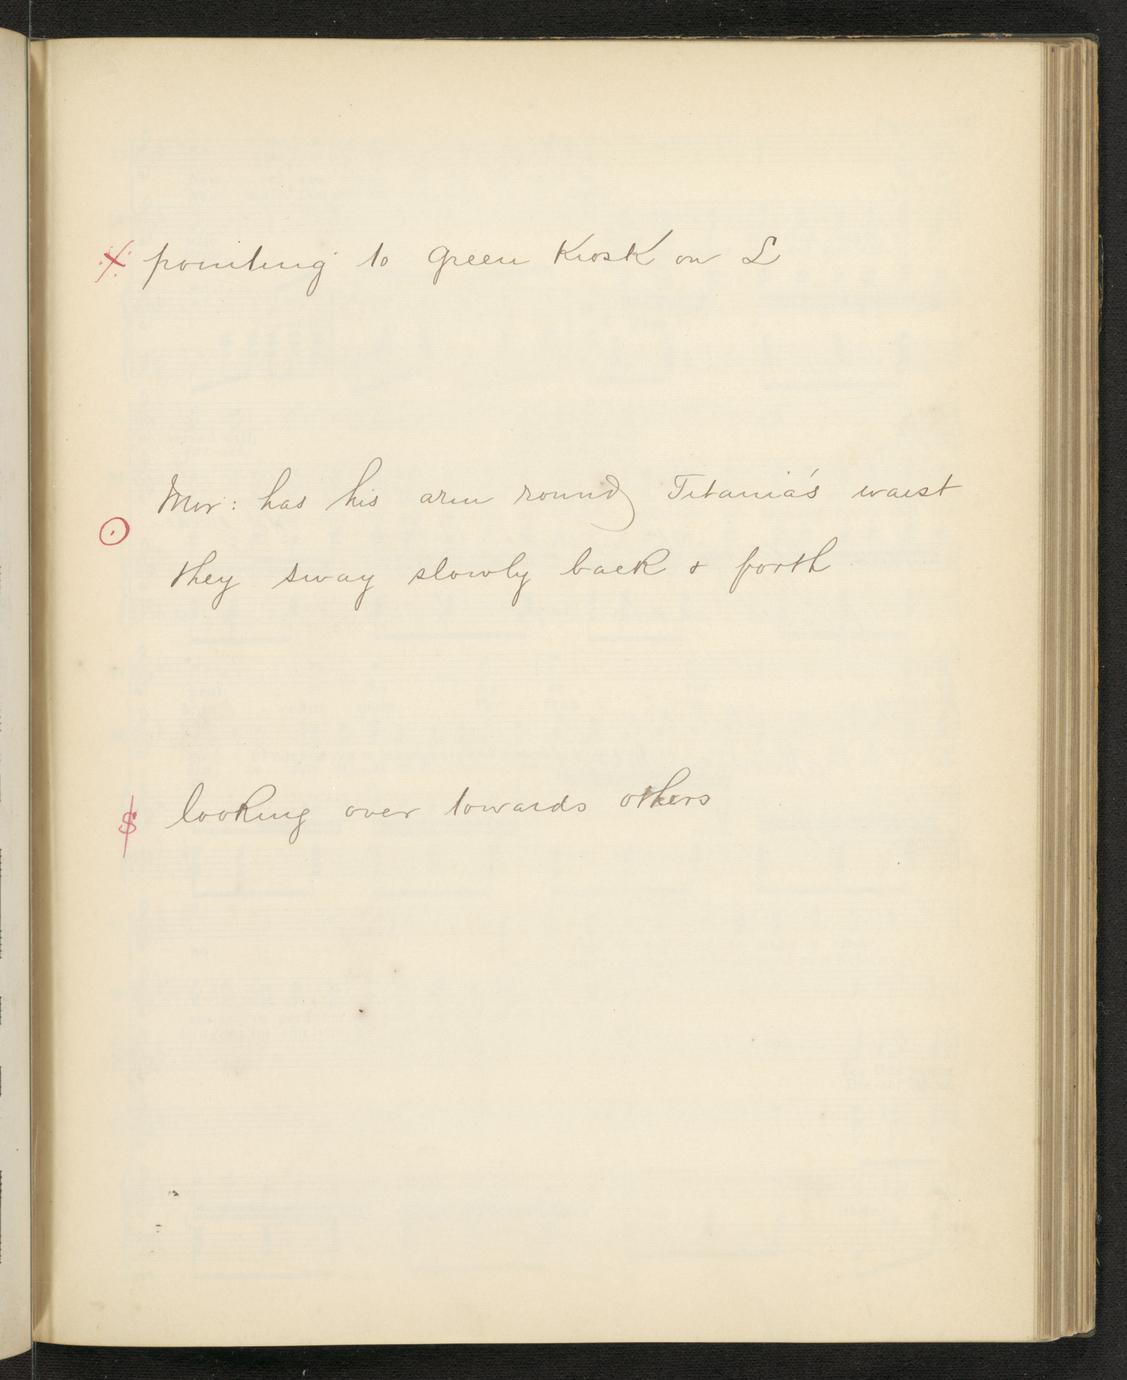 pointing to green Kiosk on L
Mor: has his arm round Titania's waist
they sway slowly back & forth
looking over towards others